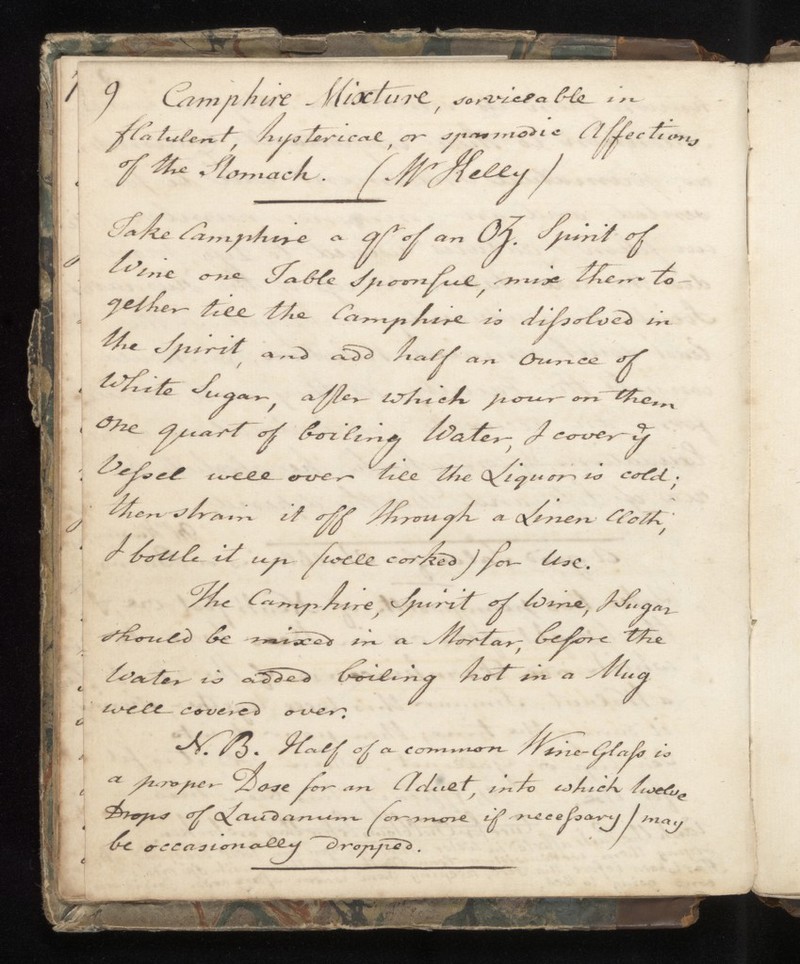 9 Camphire Mixture, serviceable in
flatulent, hysterical, or spasmodic Affections
of the Stomach. (Mr Kelly)
Take Camphire a qr of an Oz. Spirit of
Wine one Table Spoonful, mix them to-
gether till the Camphire is dissolved in
the Spirit, and add half an ounce of
White Sugar, after which pour on them
one quart of boiling Water, & cover ye
Vessel well over till the Liquor is cold;
then strain it off through a Linen Cloth,
& bottle it up (well corked) for Use.
The Camphire, Spirit of Wine, & Sugar
should be mixed in a Mortar, before the
Water is added boiling hot in a Mug
well covered over.
N.B. Half of a common Wine-Glass is
a proper Dose for an Adult, into which twelve
Drops of Laudanum (or more if necessary) may
be occasionally dropped.